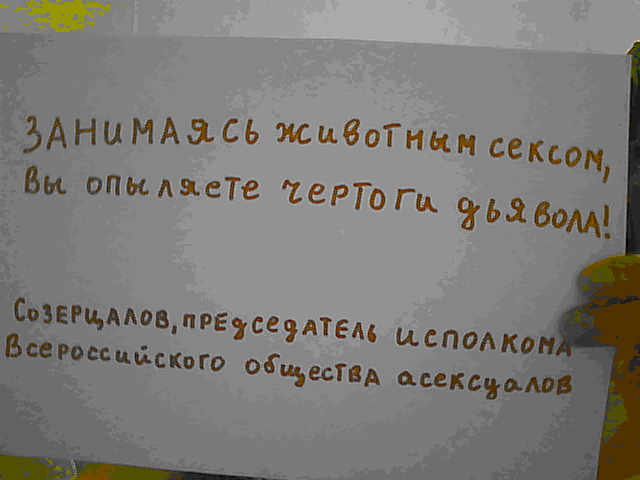 Занимаясь животным сексом,
вы опыляете чертоги дьявола!
Созерцалов, председатель исполкома
Всероссийского общества асексуалов